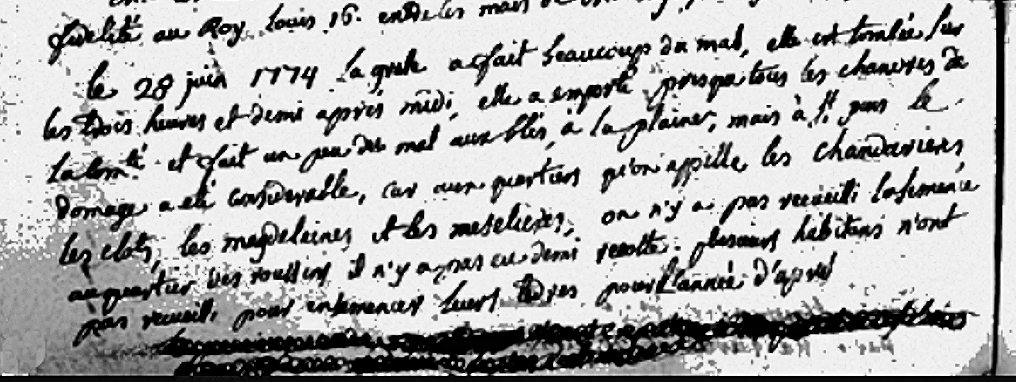 fidelité au Roy Louis 16. entre les mains de
le 28 juin 1774 la grele a fait beaucoup du mal, elle est tombée sur
les trois heures et demi aprés midi, elle a emporté presque tous les chanvres de
la comté et fait un peu du mal aux blés, à la plaine, mais à st. jans le
domage a eté considerable, car aux quartiers qu'on appelle les chandarieres
les clots, les magdeleines et les meselieres, on n'y a pas recueilli la semence
au quartier des roussins il n'y a pas eu demi recolte. plusieurs habitans n'ont
pas recueilli pour ensemencer leurs terres pour l'année d'aprés